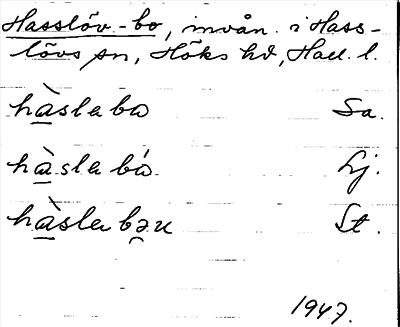 Hasslöv-bo, invån. i Hass-
lövs sn, Höks hd, Hall. l.
hàslabo Sa.
hàslabó Lj.
hàslabəu St.
1947.